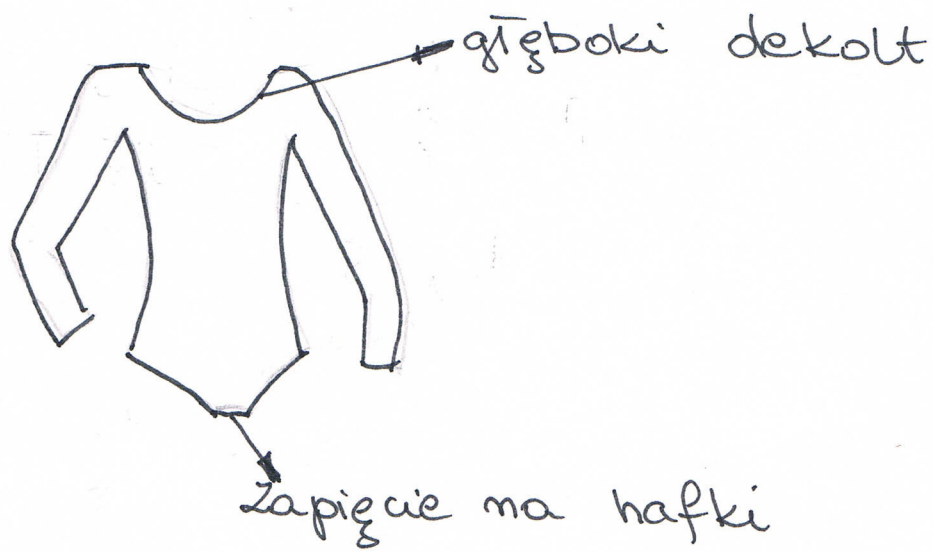 głęboki dekolt
zapięcie na hafki